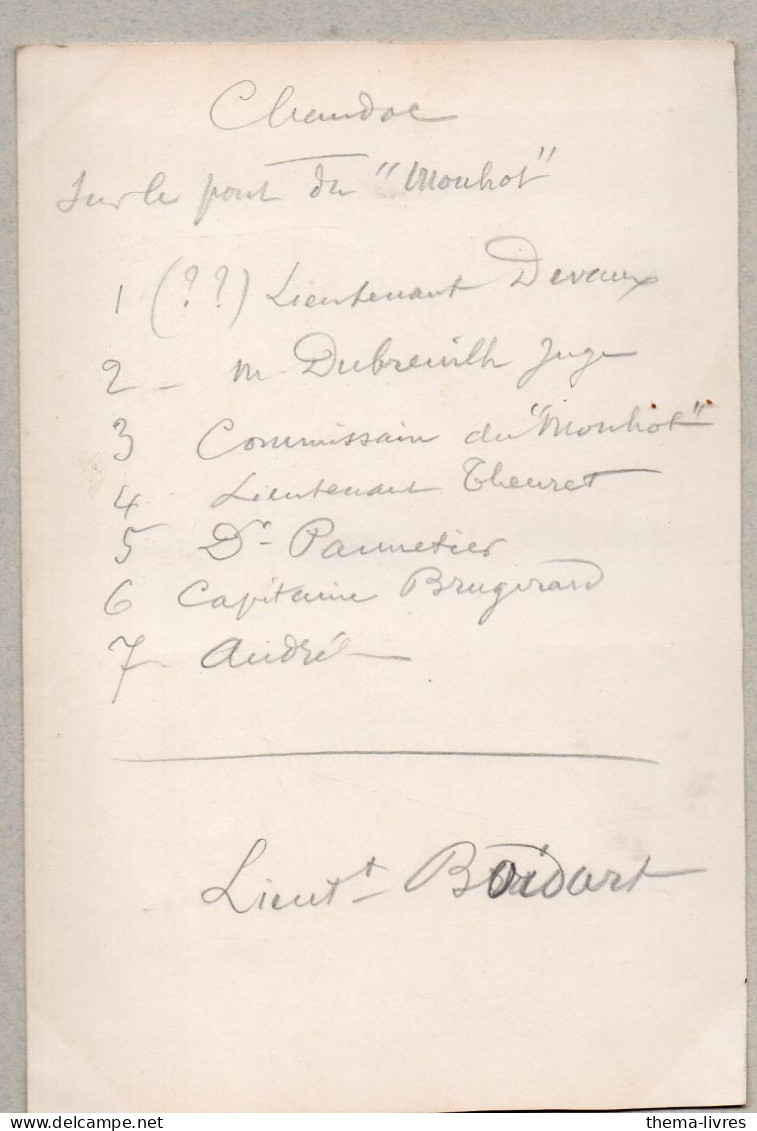 Chaudoc
Sur le pont du "Mouhot"
1 (??) Lieutenant Devaux
2 - M. Dubreuilh Juge
3 Commissaire du "Mouhot"
4 Lieutenant Theuret
5 Dr Pannetier
6 Capitaine Brugirard
7 André
Lieutt Boidart
www.delcampe.net
thema-livres